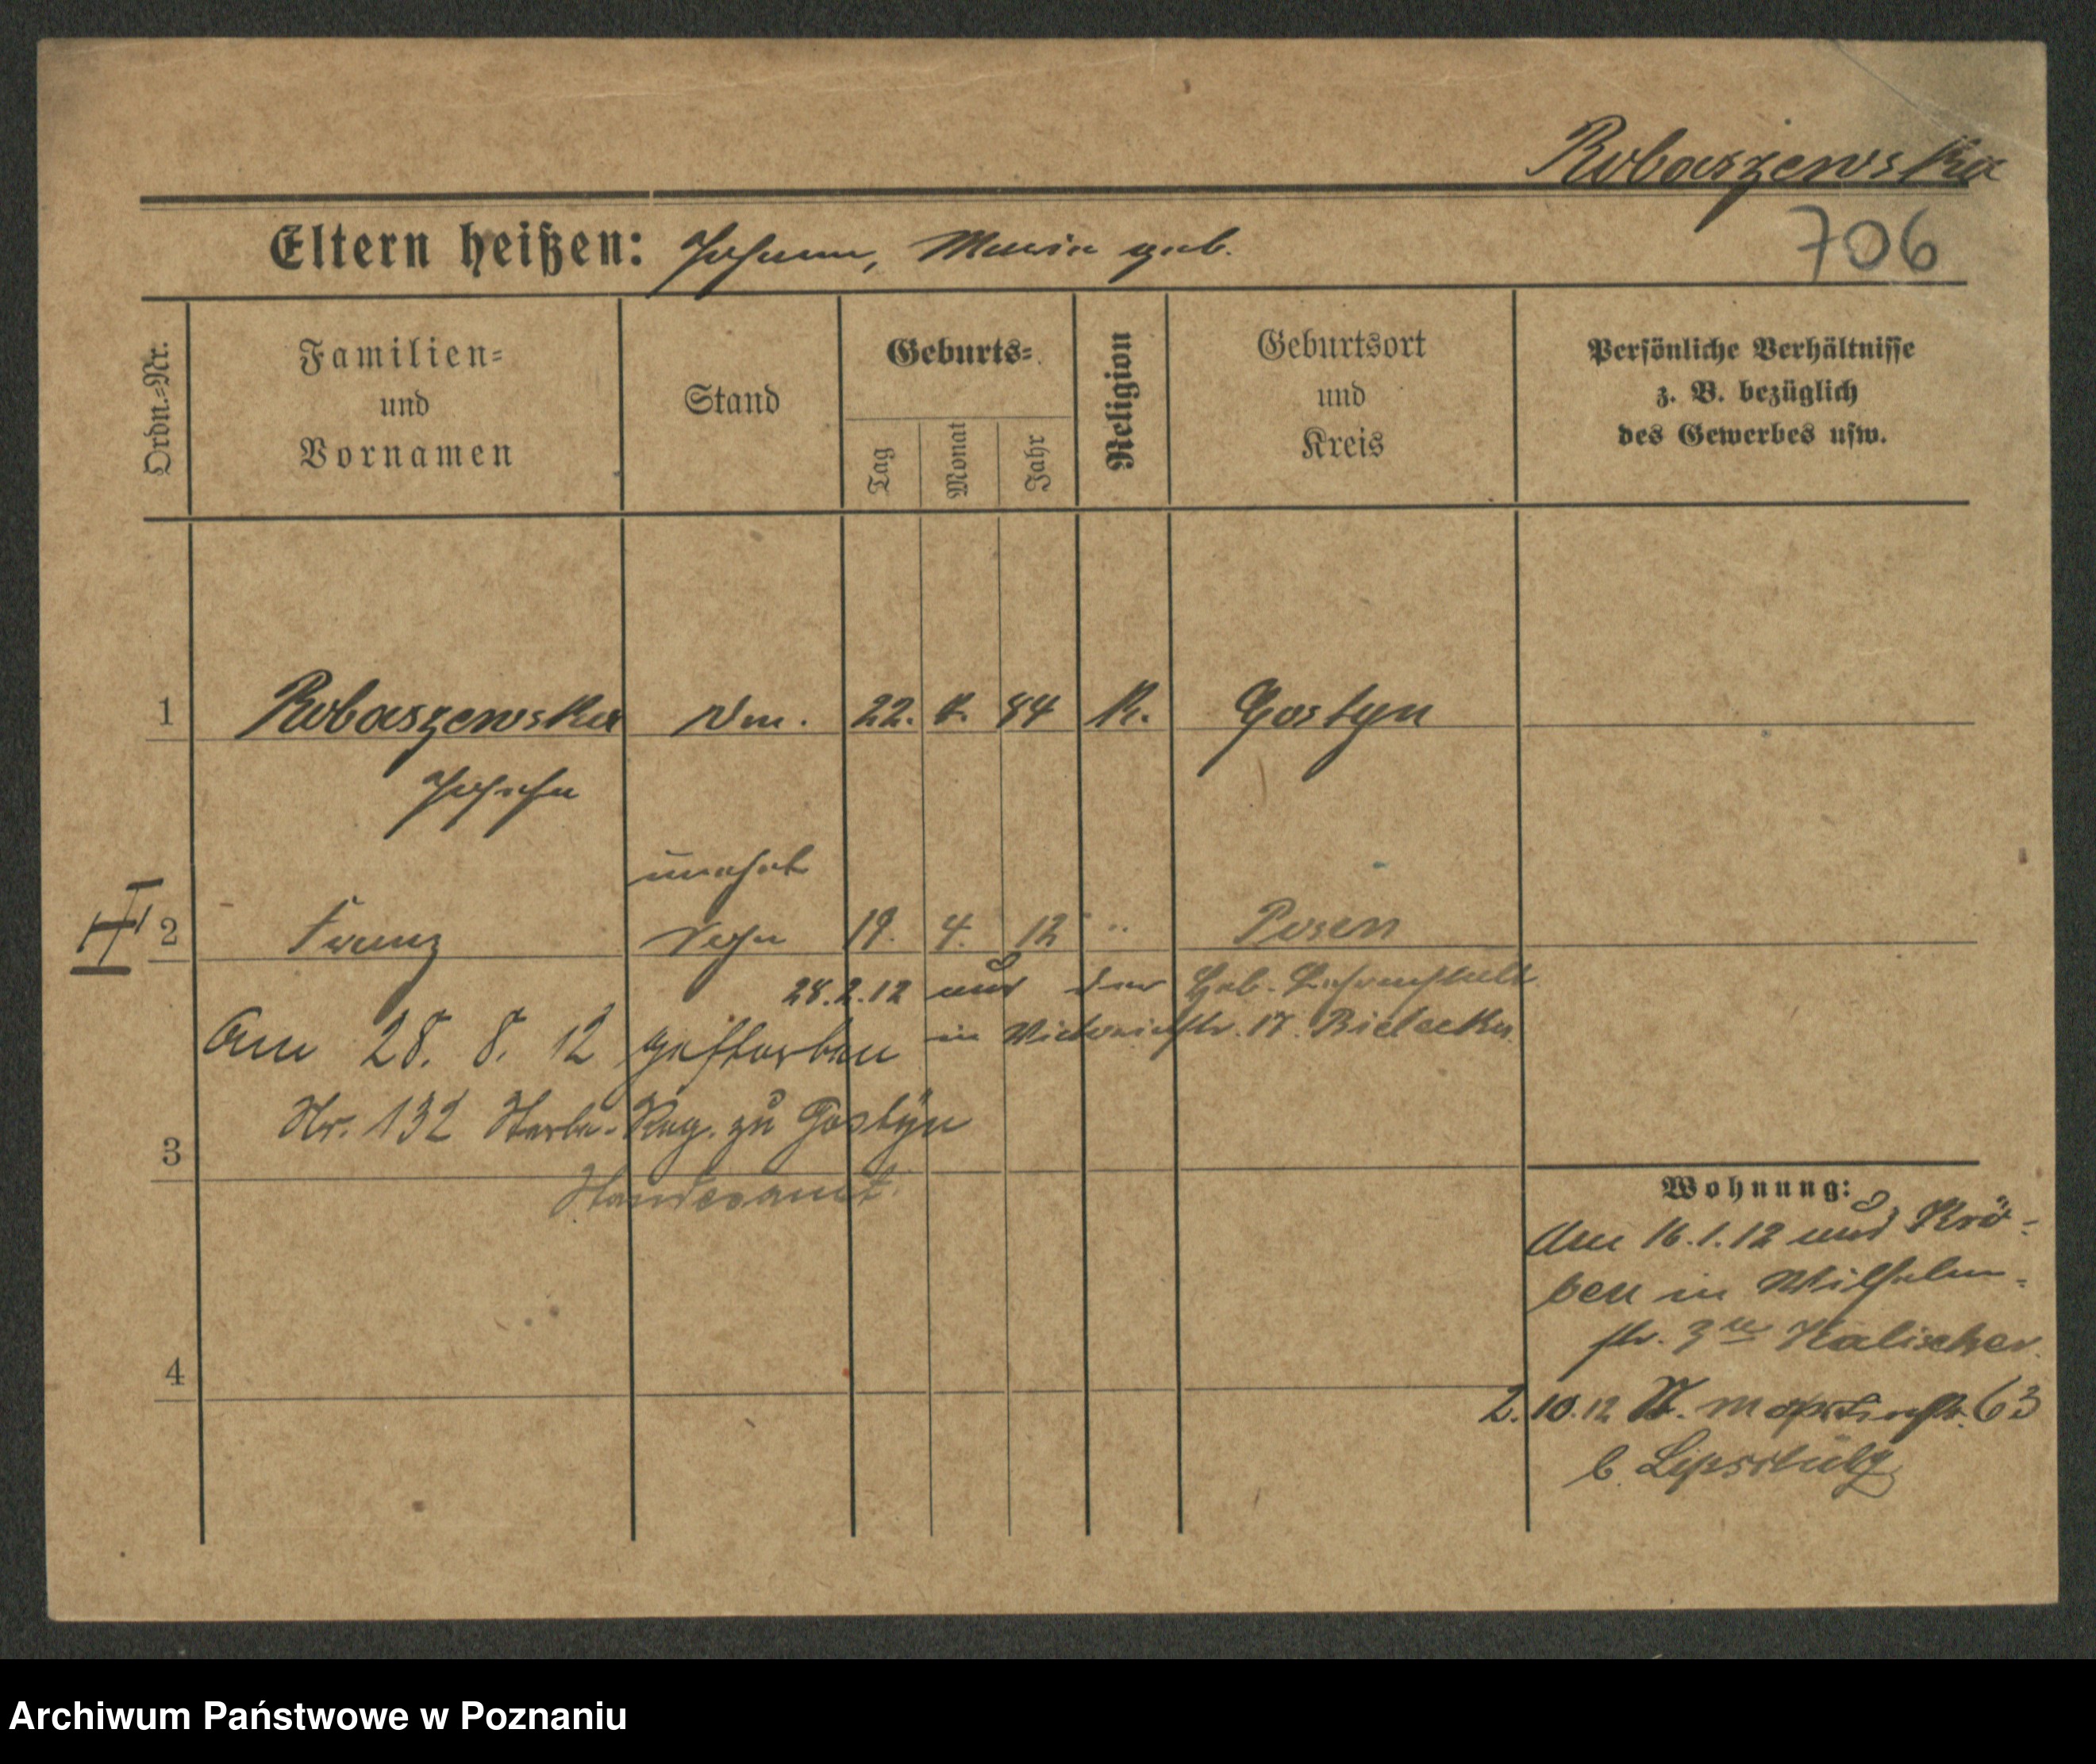 Robaszewska
Eltern heißen: Johann, Maria geb.
706
Ordn.-Nr.
Familien-
und
Vornamen
Stand
Geburts-
Tag
Monat
Jahr
Religion
Geburtsort
und
Kreis
Persönliche Verhältnisse
z. B. bezüglich
des Gewerbes usw.
1 Robaszewska 22. 84 K. Gostyn
Josefa
unehel
2 Franz Sohn 19. 4. 12 " Posen
28.2.12 aus der Heb. Lehranstalt
in Victoriastr. 17. Bielecka
Am 28. 8. 12 gestorben
Nr. 132 Sterbe-Reg. zu Gostyn
3
Standesamt.
Wohnung:
Am 16.1.12 aus Krö-
ben in Wilhelm-
str. 3 Kalischer.
4
2.10.12 St. Martinstr. 63
b.
Archiwum Państwowe w Poznaniu